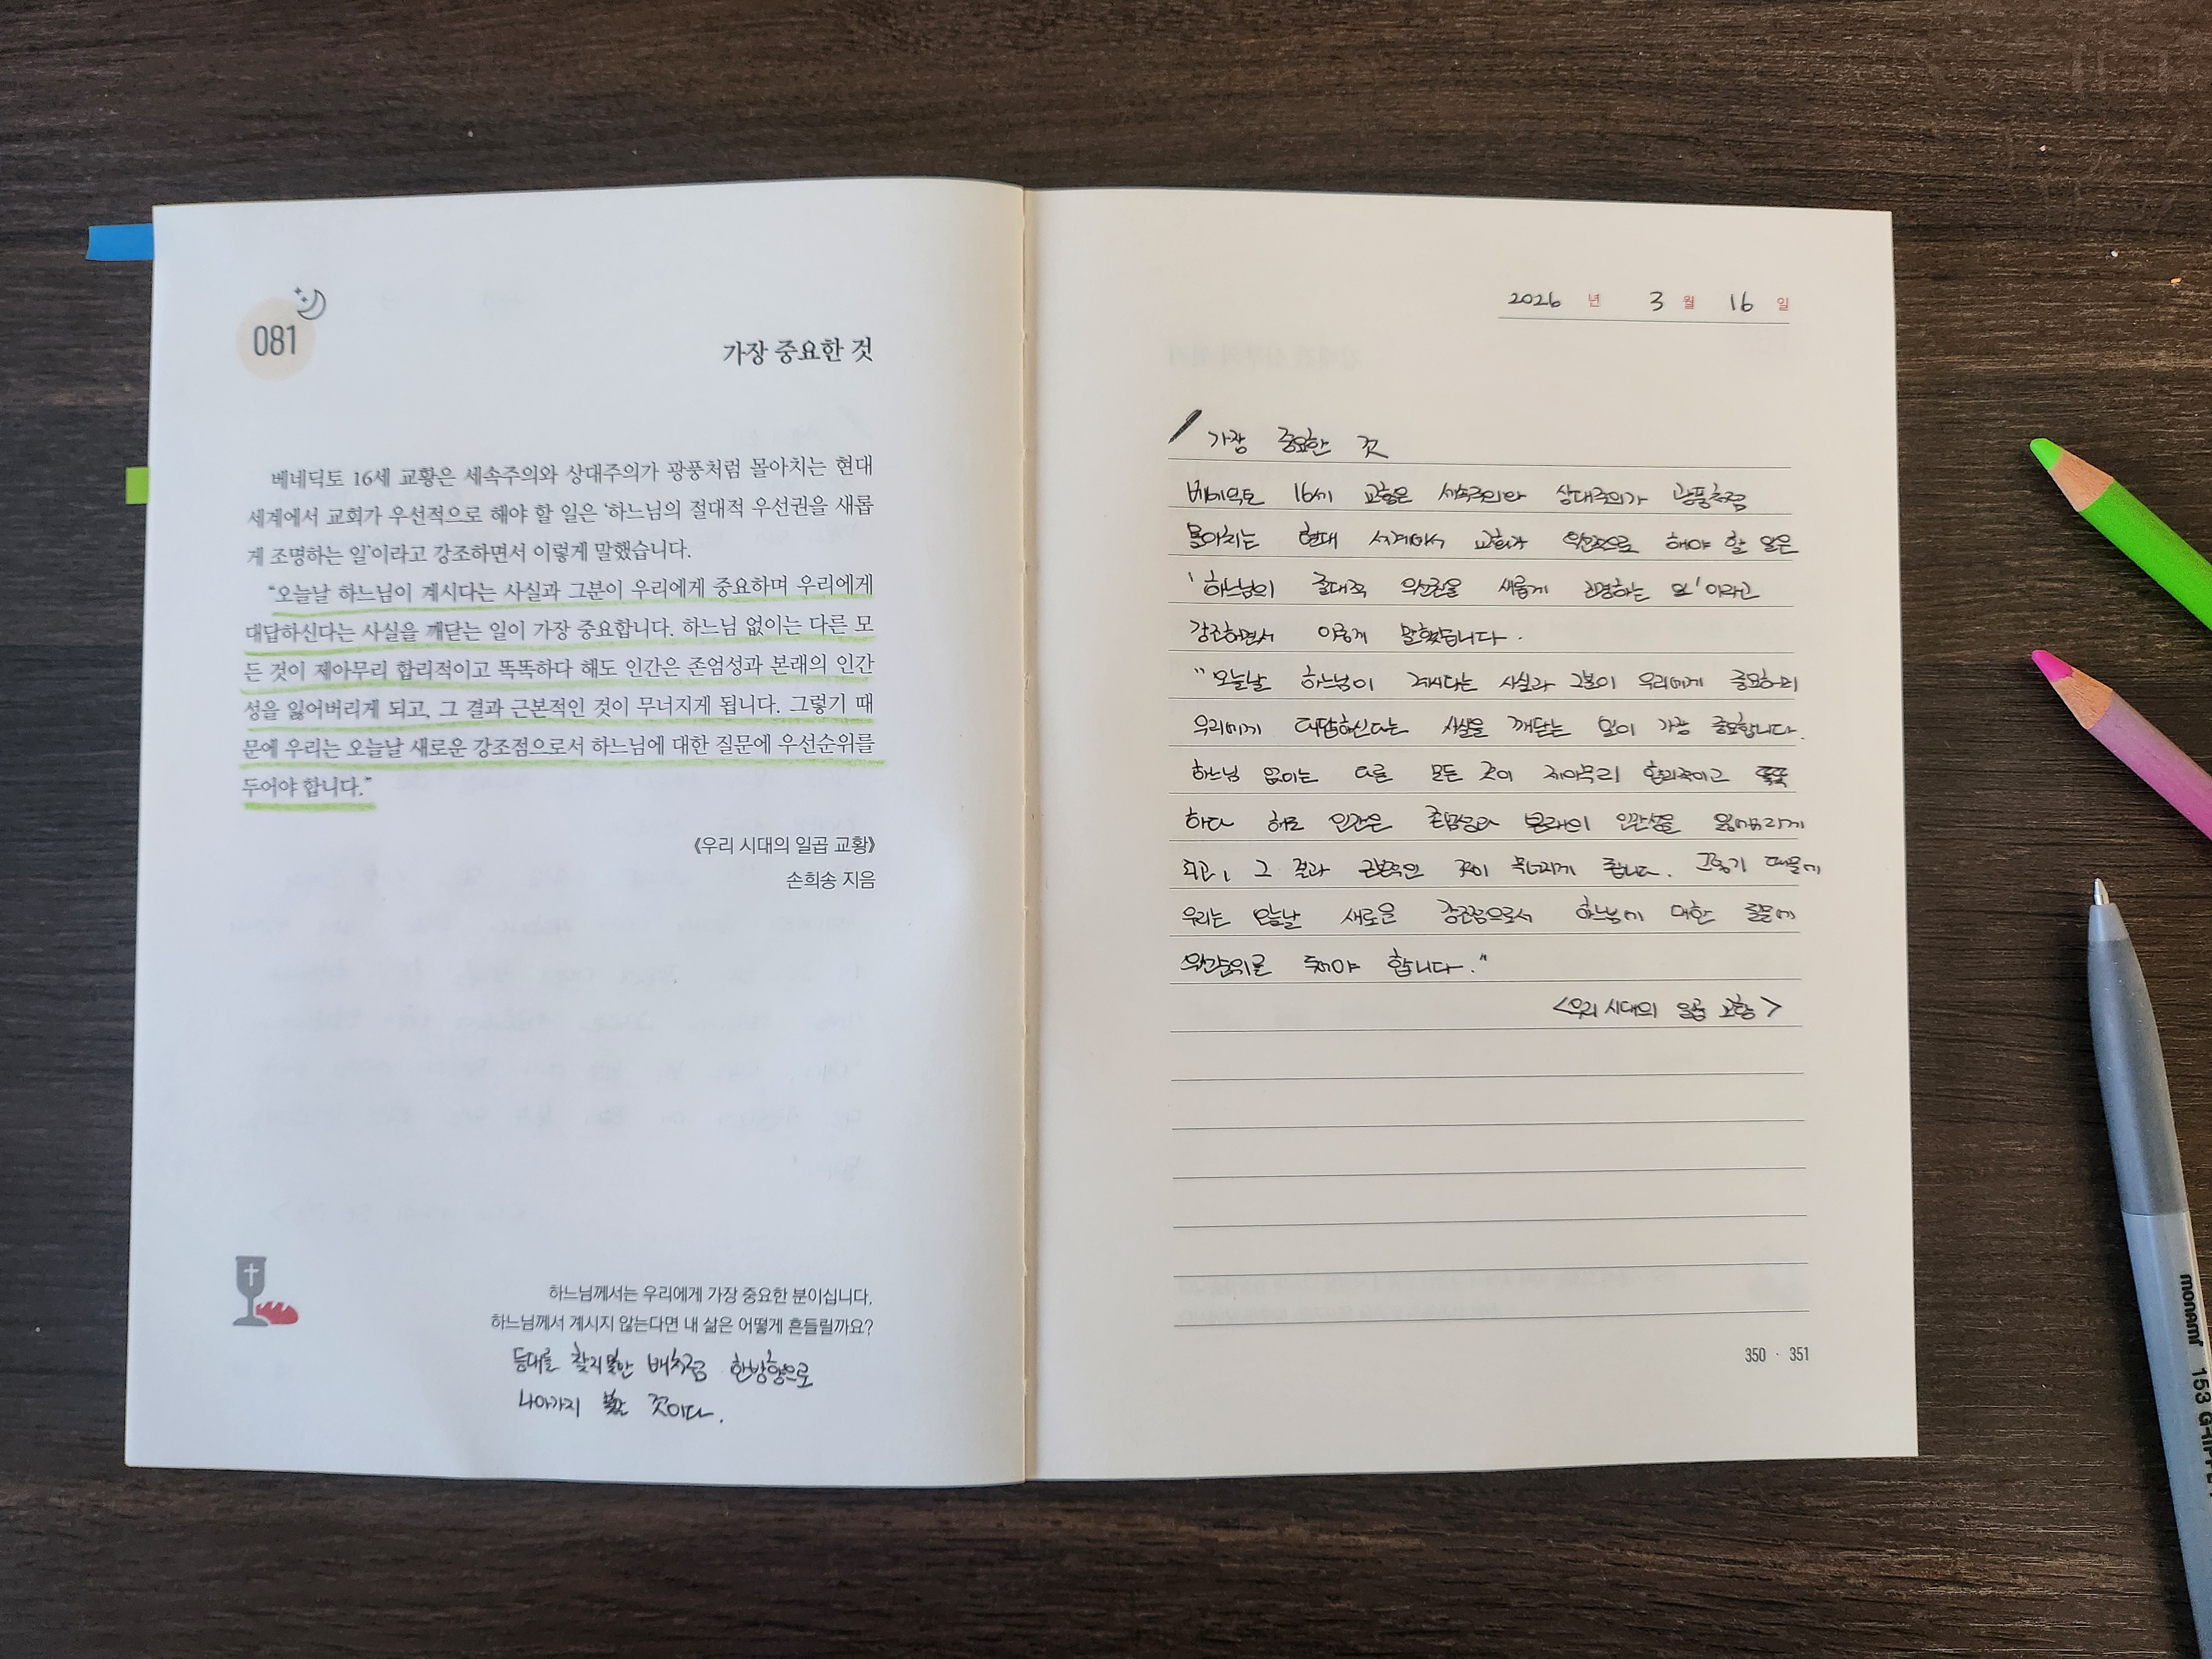 081
가장 중요한 것
베네딕토 16세 교황은 세속주의와 상대주의가 광풍처럼 몰아치는 현대
세계에서 교회가 우선적으로 해야 할 일은 ‘하느님의 절대적 우선권을 새롭
게 조명하는 일’이라고 강조하면서 이렇게 말했습니다.
“오늘날 하느님이 계시다는 사실과 그분이 우리에게 중요하며 우리에게
대답하신다는 사실을 깨닫는 일이 가장 중요합니다. 하느님 없이는 다른 모
든 것이 제아무리 합리적이고 똑똑하다 해도 인간은 존엄성과 본래의 인간
성을 잃어버리게 되고, 그 결과 근본적인 것이 무너지게 됩니다. 그렇기 때
문에 우리는 오늘날 새로운 강조점으로서 하느님에 대한 질문에 우선순위를
두어야 합니다.”
《우리 시대의 일곱 교황》
손희송 지음
하느님께서는 우리에게 가장 중요한 분이십니다.
하느님께서 계시지 않는다면 내 삶은 어떻게 흔들릴까요?
등대를 찾지 못한 배처럼 한방향으로
나아가지 못할 것이다.
2026 년 3 월 16 일
가장 중요한 것
베네딕토 16세 교황은 세속주의와 상대주의가 광풍처럼
몰아치는 현대 세계에서 교회가 우선적으로 해야 할 일은
'하느님의 절대적 우선권을 새롭게 조명하는 일'이라고
강조하면서 이렇게 말했습니다.
"오늘날 하느님이 계시다는 사실과 그분이 우리에게 중요하며
우리에게 대답하신다는 사실을 깨닫는 일이 가장 중요합니다.
하느님 없이는 다른 모든 것이 제아무리 합리적이고 똑똑
하다 해도 인간은 존엄성과 본래의 인간성을 잃어버리게
되고, 그 결과 근본적인 것이 무너지게 됩니다. 그렇기 때문에
우리는 오늘날 새로운 강조점으로서 하느님에 대한 질문에
우선순위를 두어야 합니다."
<우리 시대의 일곱 교황>
350 · 351
monami 153